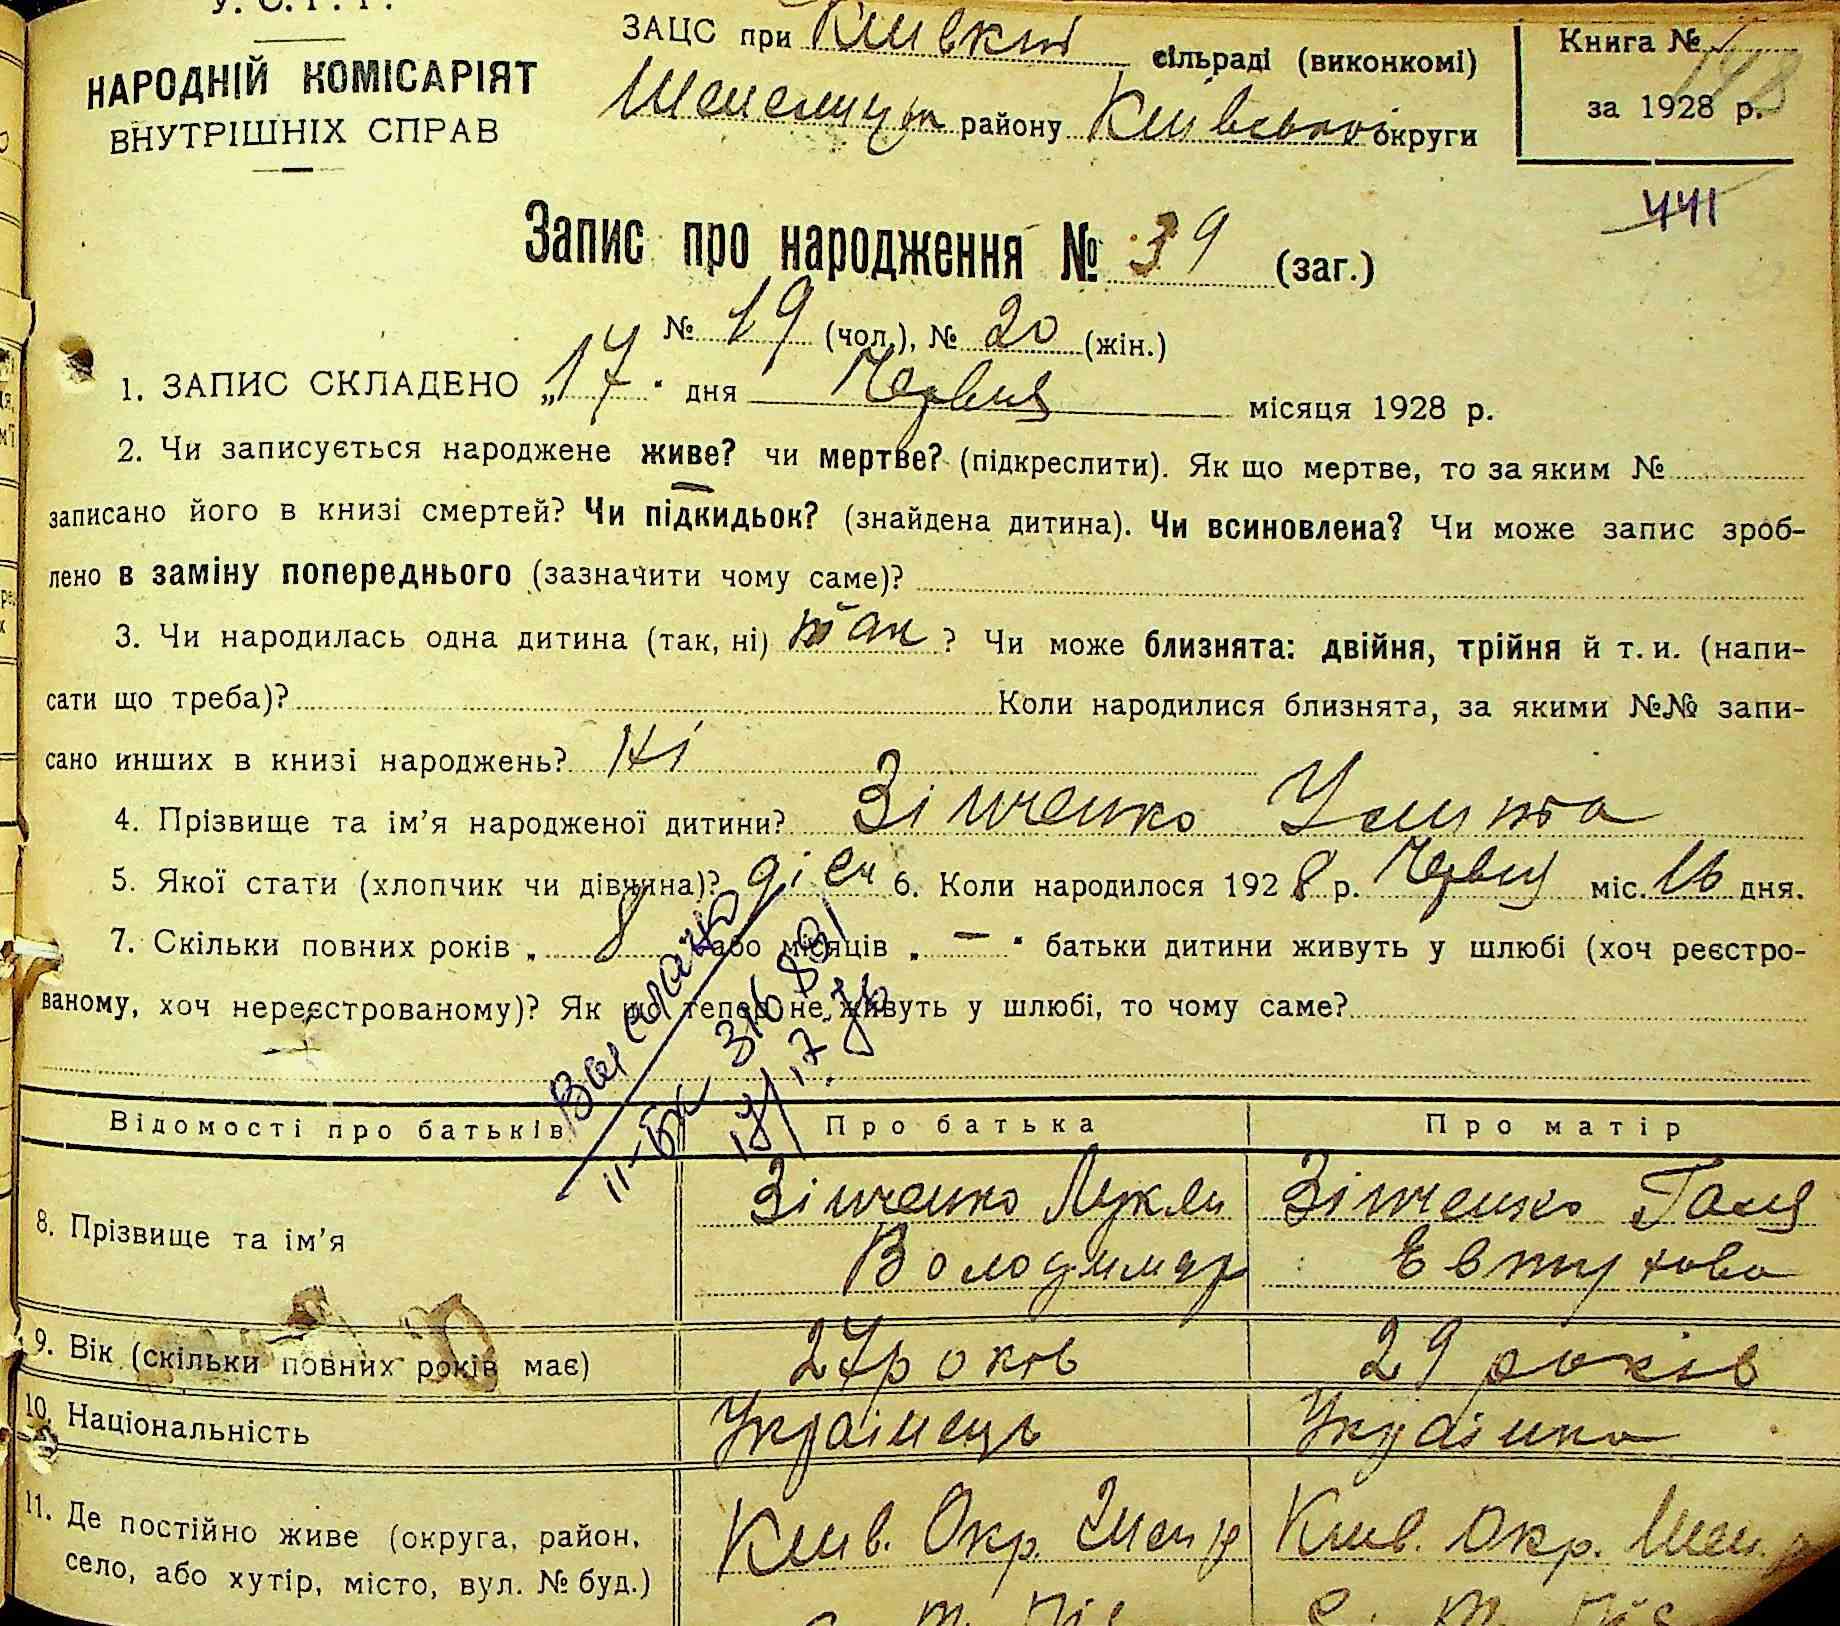 У. С. Р. Р.
НАРОДНІЙ КОМІСАРІЯТ
ВНУТРІШНІХ СПРАВ
ЗАЦС при сільраді (виконкомі)
району Київської округи
Книга №
за 1928 р.
441
Запис про народження № 39 (заг.)
№ 19 (чол.), № 20 (жін.)
1. ЗАПИС СКЛАДЕНО „17" дня Червня місяця 1928 р.
2. Чи записується народжене живе? чи мертве? (підкреслити). Як що мертве, то за яким №
записано його в книзі смертей? Чи підкидьок? (знайдена дитина). Чи всиновлена? Чи може запис зроб-
лено в заміну попереднього (зазначити чому саме)?
3. Чи народилась одна дитина (так, ні) так ? Чи може близнята: двійня, трійня й т. и. (напи-
сати що треба)? Коли народилися близнята, за якими №№ запи-
сано инших в книзі народжень? Ні
4. Прізвище та ім'я народженої дитини? Зінченко Улита
5. Якої стати (хлопчик чи дівчина)? дівч 6. Коли народилося 1928 р. Червня міс. 16 дня.
7. Скільки повних років „ 8 або місяців „ — " батьки дитини живуть у шлюбі (хоч реєстро-
ваному, хоч нереєстрованому)? Як що тепер не живуть у шлюбі, то чому саме?
Відомості про батьків Про батька Про матір
8. Прізвище та ім'я Зінченко Лукян Зінченко Галя
Володимир Евтухова
9. Вік (скільки повних років має) 27 років 29 років
10. Національність Українець Українка
11. Де постійно живе (округа, район, Київ. Окр. Київ. Окр.
село, або хутір, місто, вул. № буд.)